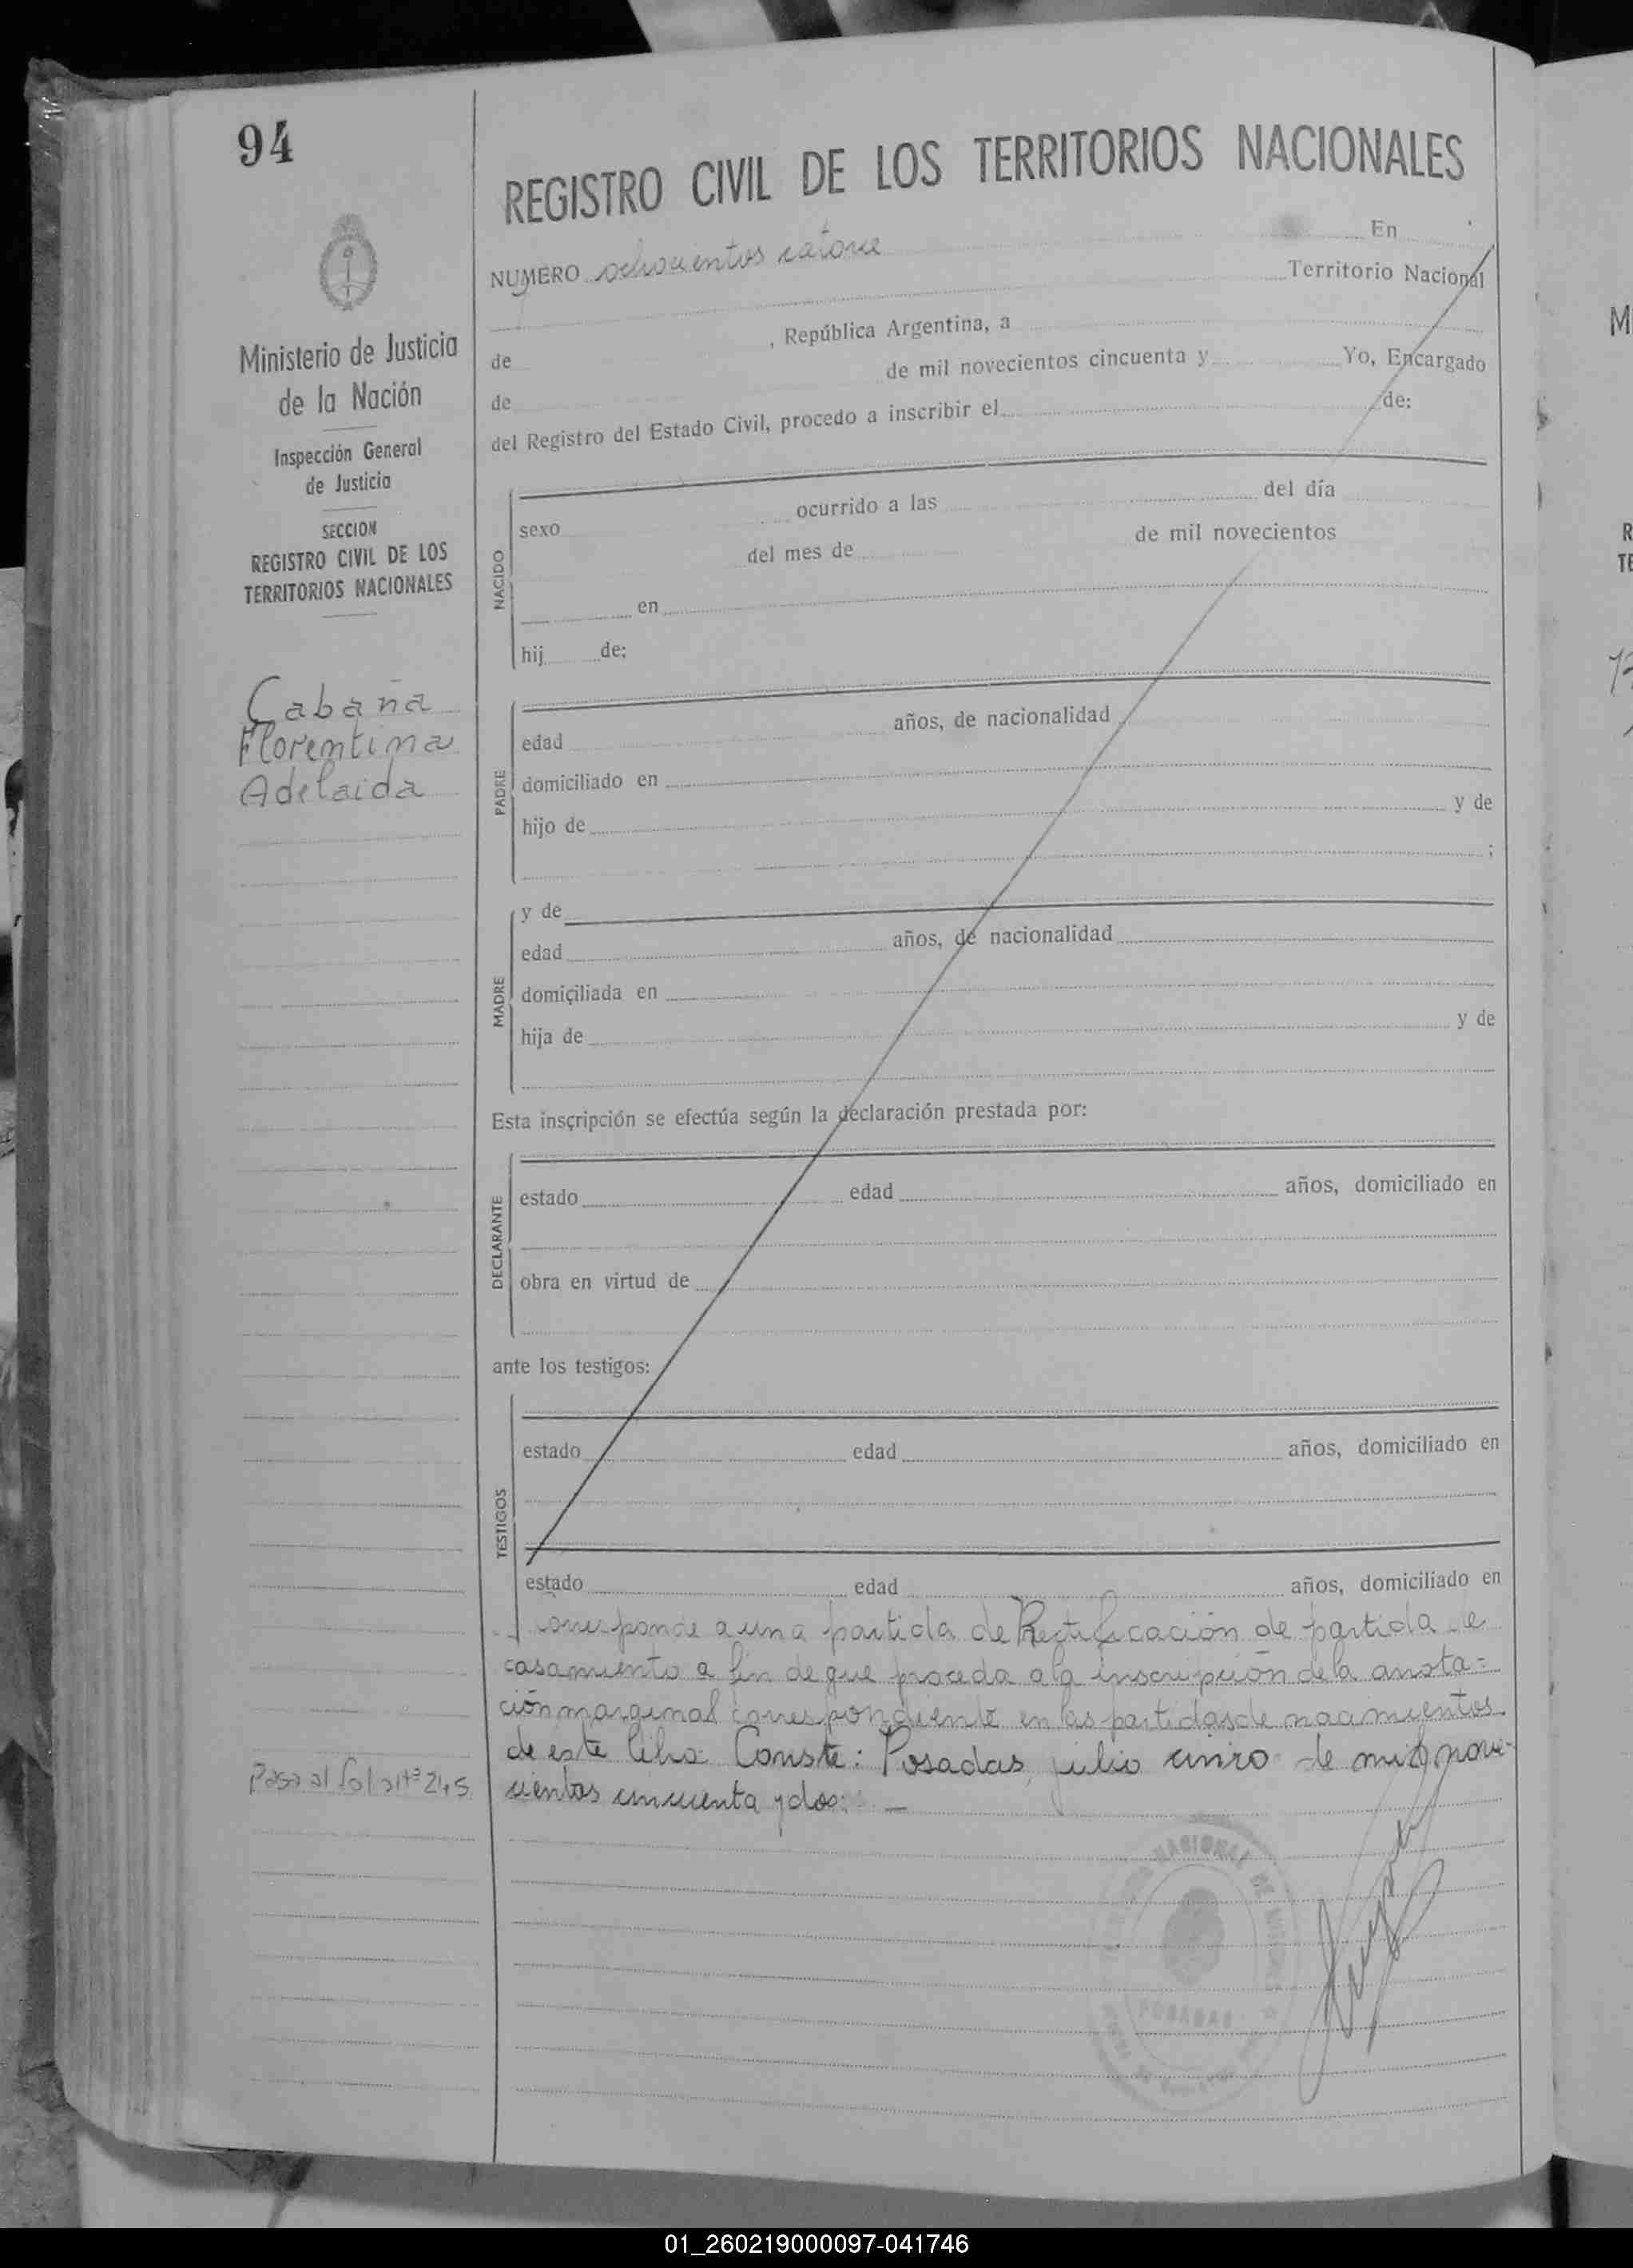 94
Ministerio de Justicia
de la Nación
Inspección General
de Justicia
SECCION
REGISTRO CIVIL DE LOS
TERRITORIOS NACIONALES
Cabaña
Florentina
Adelaida
Paso al folio Nº 245
REGISTRO CIVIL DE LOS TERRITORIOS NACIONALES
NUMERO ochocientos catorce En
Territorio Nacional
de , República Argentina, a
de de mil novecientos cincuenta y Yo, Encargado
del Registro del Estado Civil, procedo a inscribir el de:
NACIDO
sexo ocurrido a las del día
del mes de de mil novecientos
en
hij de:
PADRE
edad años, de nacionalidad
domiciliado en
hijo de y de
;
MADRE
y de
edad años, de nacionalidad
domiciliada en
hija de y de
Esta inscripción se efectúa según la declaración prestada por:
DECLARANTE
estado edad años, domiciliado en
obra en virtud de
ante los testigos:
TESTIGOS
estado edad años, domiciliado en
estado edad años, domiciliado en
Corresponde a una partida de Rectificación de partida de
casamiento a fin de que proceda a la inscripción de la anota=
ción marginal correspondiente en las partidas de nacimientos
de este libro. Conste: Posadas, julio cinco de mil nove-
cientos cincuenta y dos: —
NACIONAL DE
POSADAS
M
R
TE
01_260219000097-041746